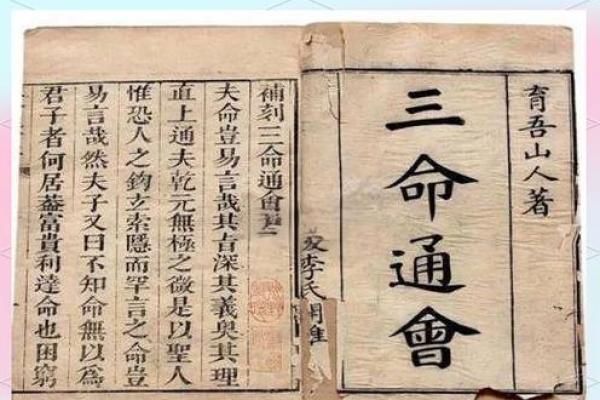 育吾山人著
三命通會
李氏
補刻三命通會
夫命豈易言哉其旨深其義奥其理
直上通夫乾元無極之微是以聖人
惟恐人之鉤玄索隱而罕言之命豈
易言哉然夫子又曰不知命無以為
君子者何居蓋富貴利達命也困窮